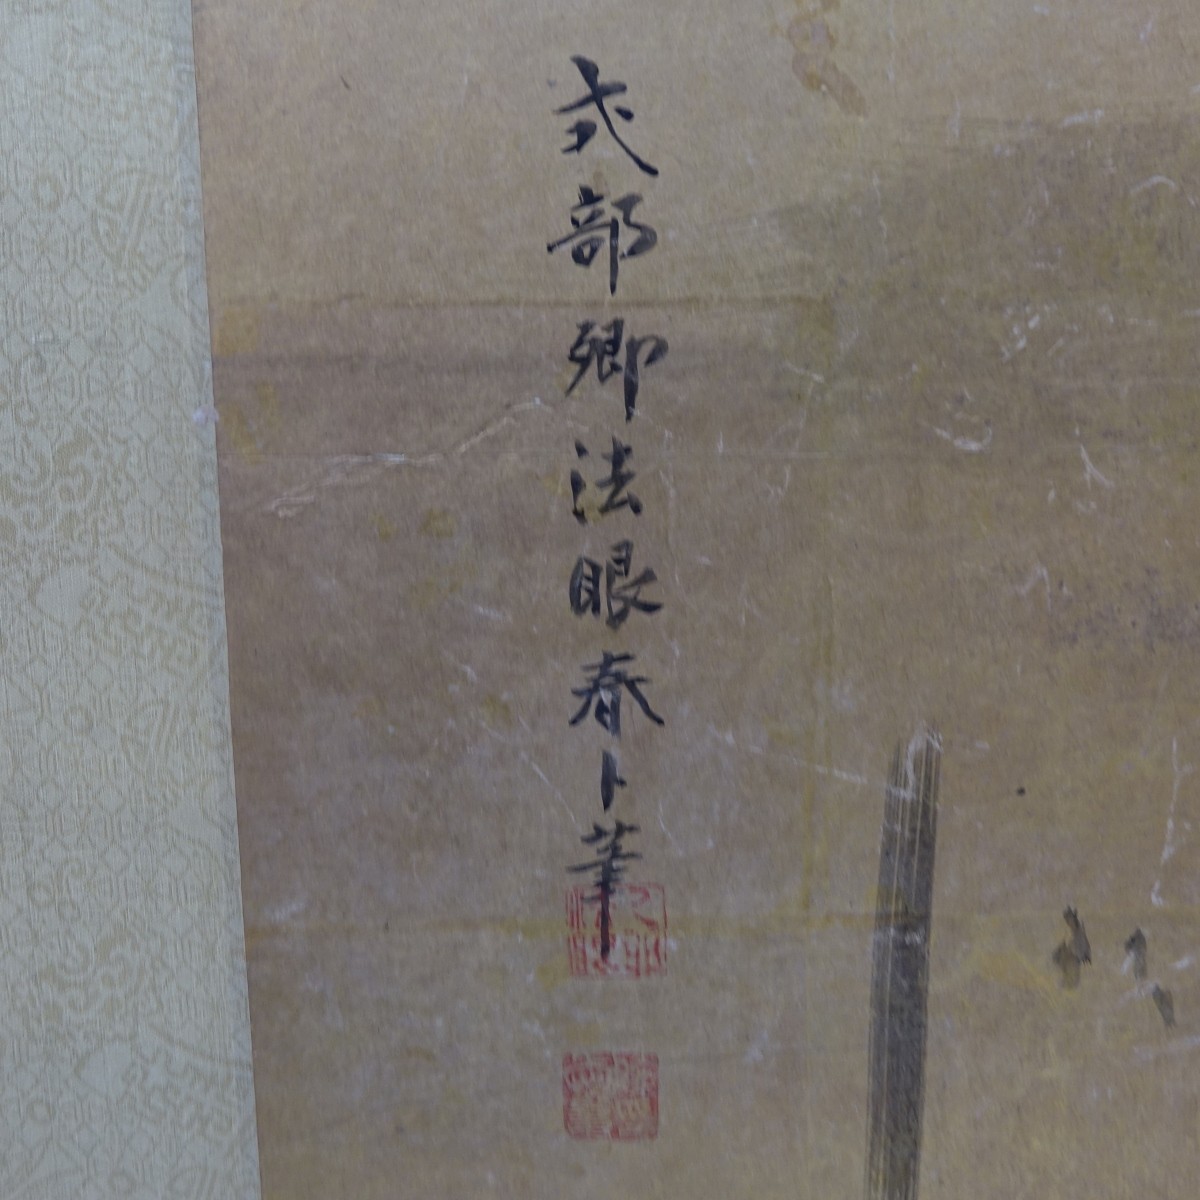 式部卿法眼春卜筆